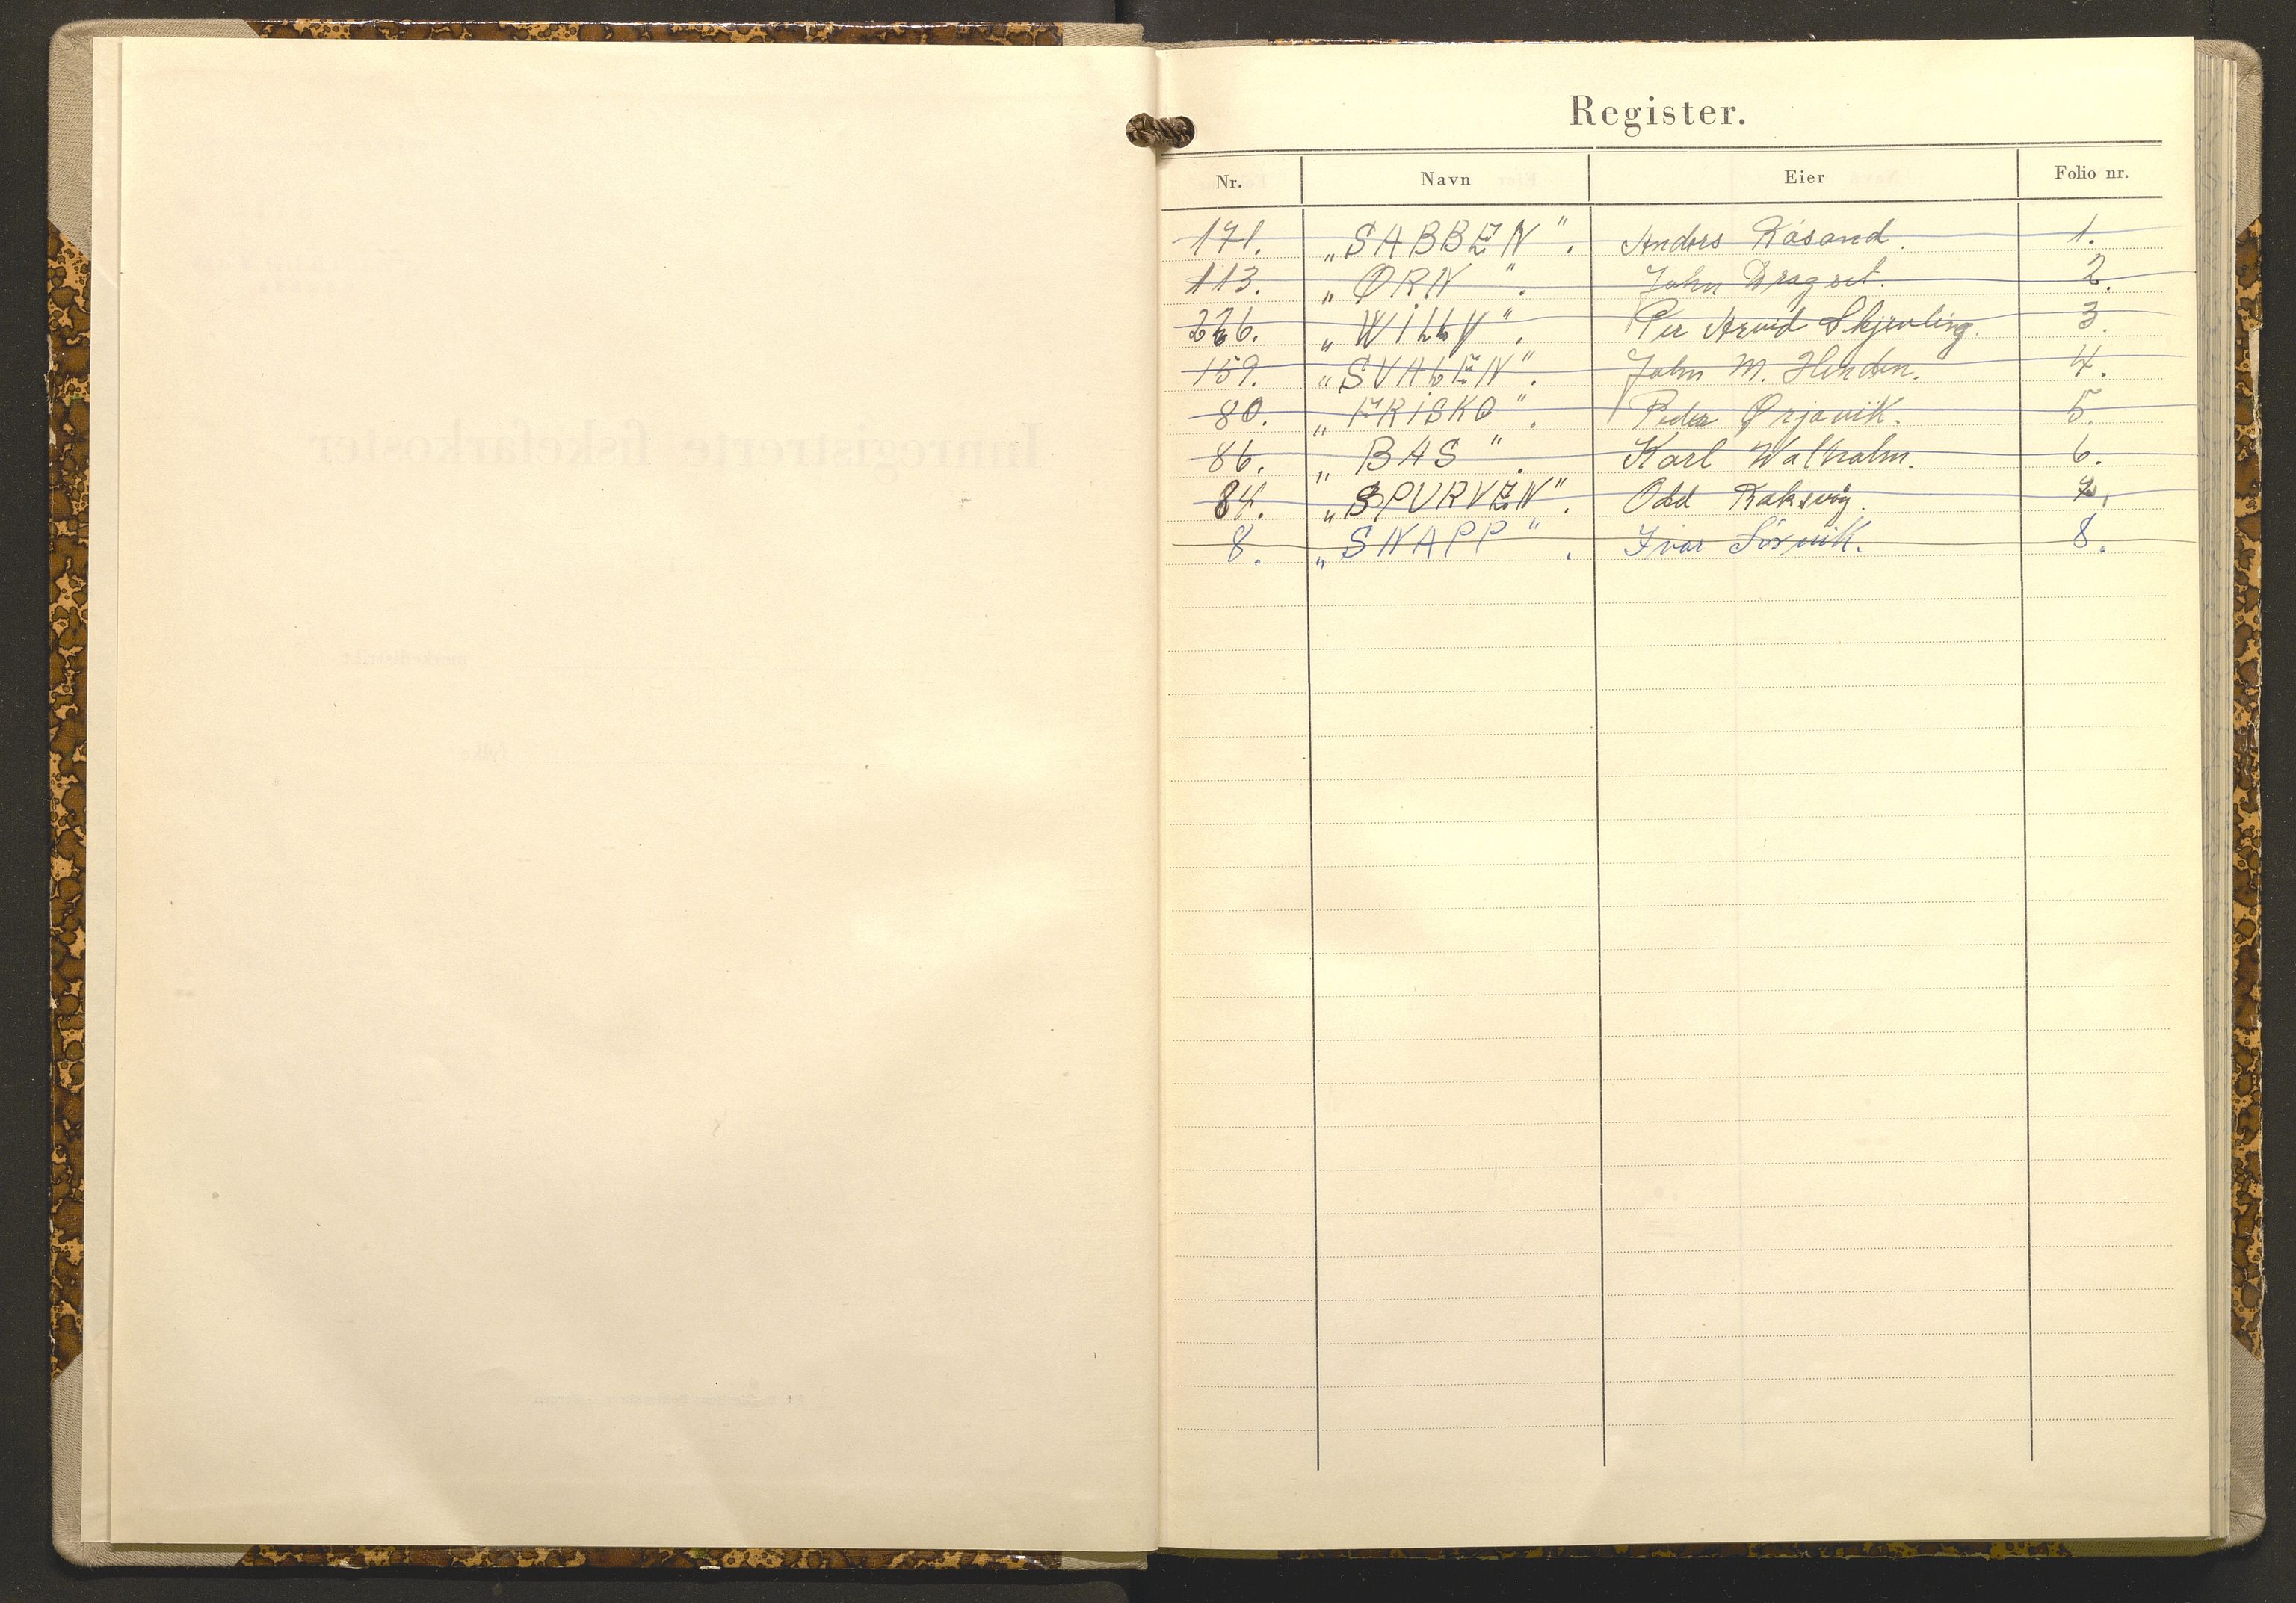 Register.
Nr. Navn Eier Folio nr.
171. „SABBEN". Anders Råsand. 1.
113. „ØRN". John Dragset. 2.
226. „WILLY". Per Arvid Skjevling. 3.
159. „SVALEN". John M. Henden. 4.
80. „FRISKO". Peder Ørjavik. 5.
86. „BAS". Karl Walholm. 6.
84. „SPURVEN". Odd Raksvåg. 7.
8. „SNAPP". Ivar Sörvik. 8.
Innregistrerte fiskefarkoster
merkedistrikt
fylke